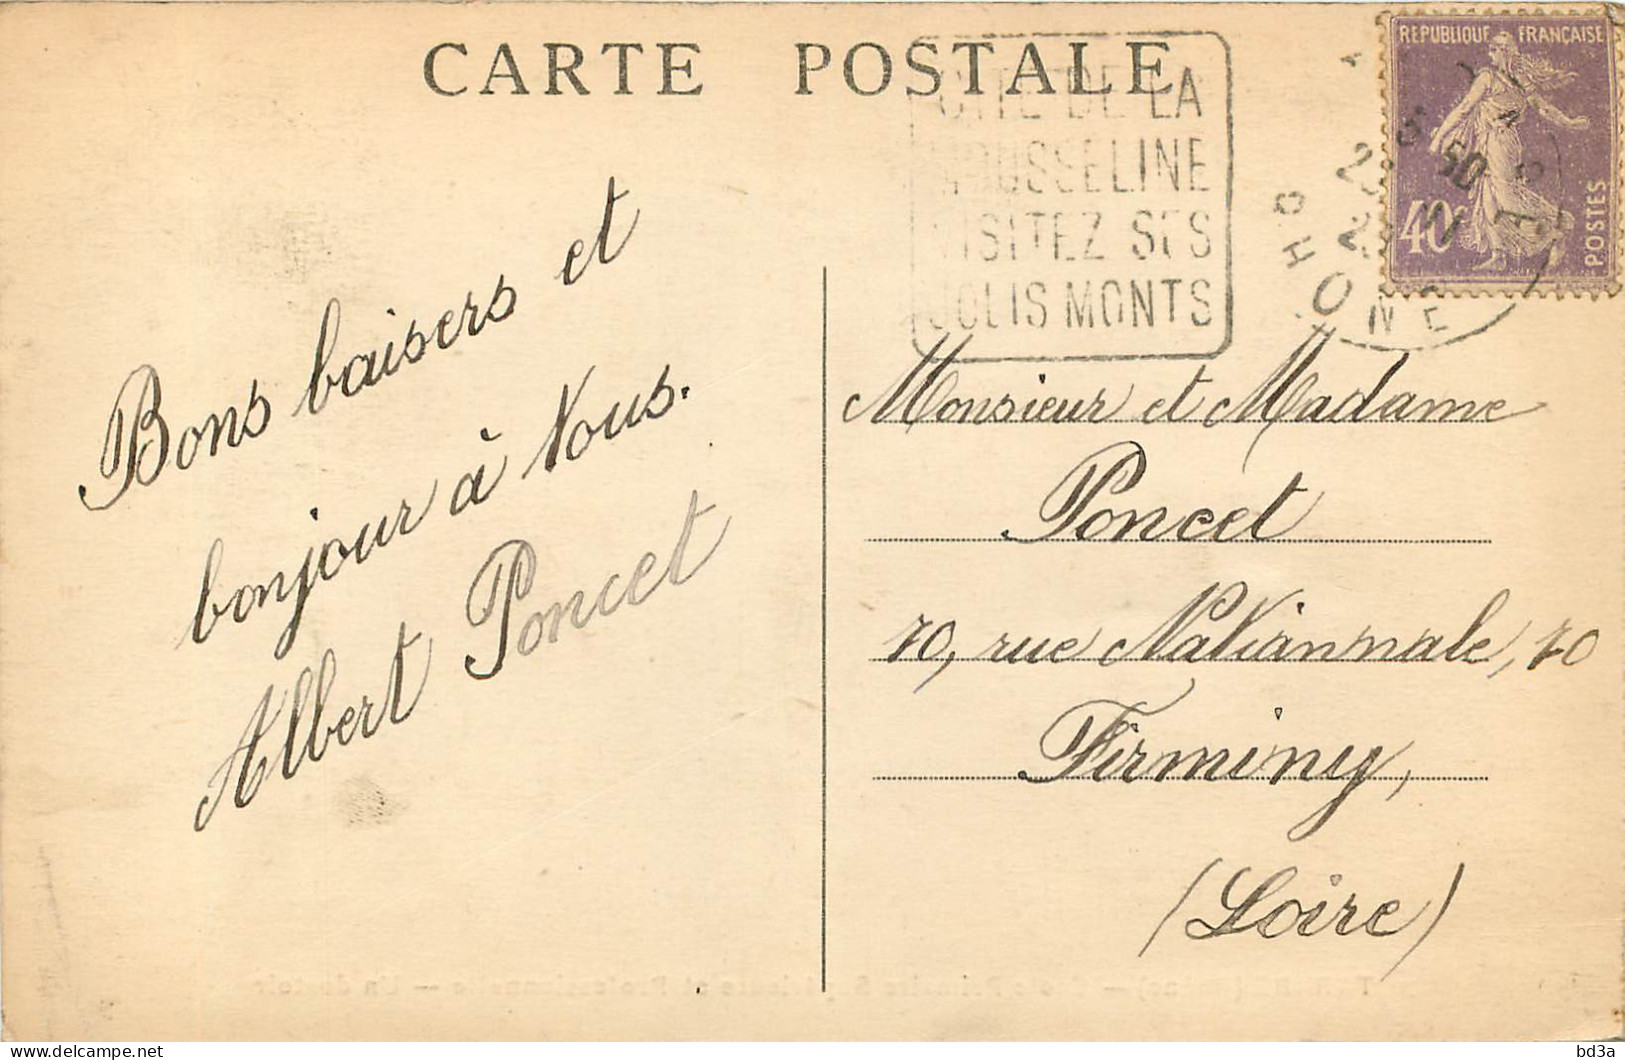 CARTE POSTALE
CITE DE LA
MOUSSELINE
VISITEZ SES
JOLIS MONTS
REPUBLIQUE FRANÇAISE
40c
POSTES
RHONE
Bons baisers et
bonjour à Vous.
Albert Poncet
Monsieur et Madame
Poncet
70, rue Nationnale, 70
Firminy,
(Loire)
bd3a